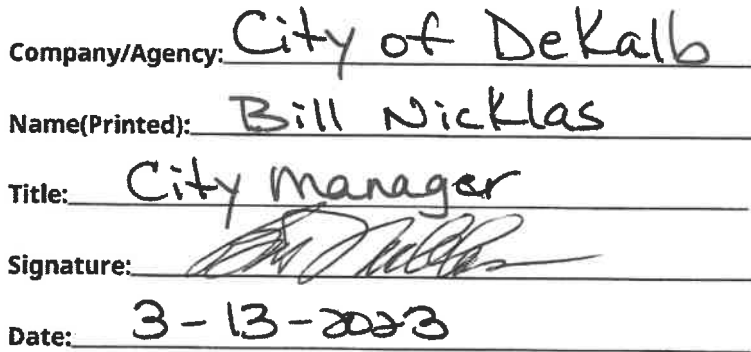 Company/Agency: City of DeKalb
Name(Printed): Bill Nicklas
Title: City Manager
Signature:
Date: 3-13-2023